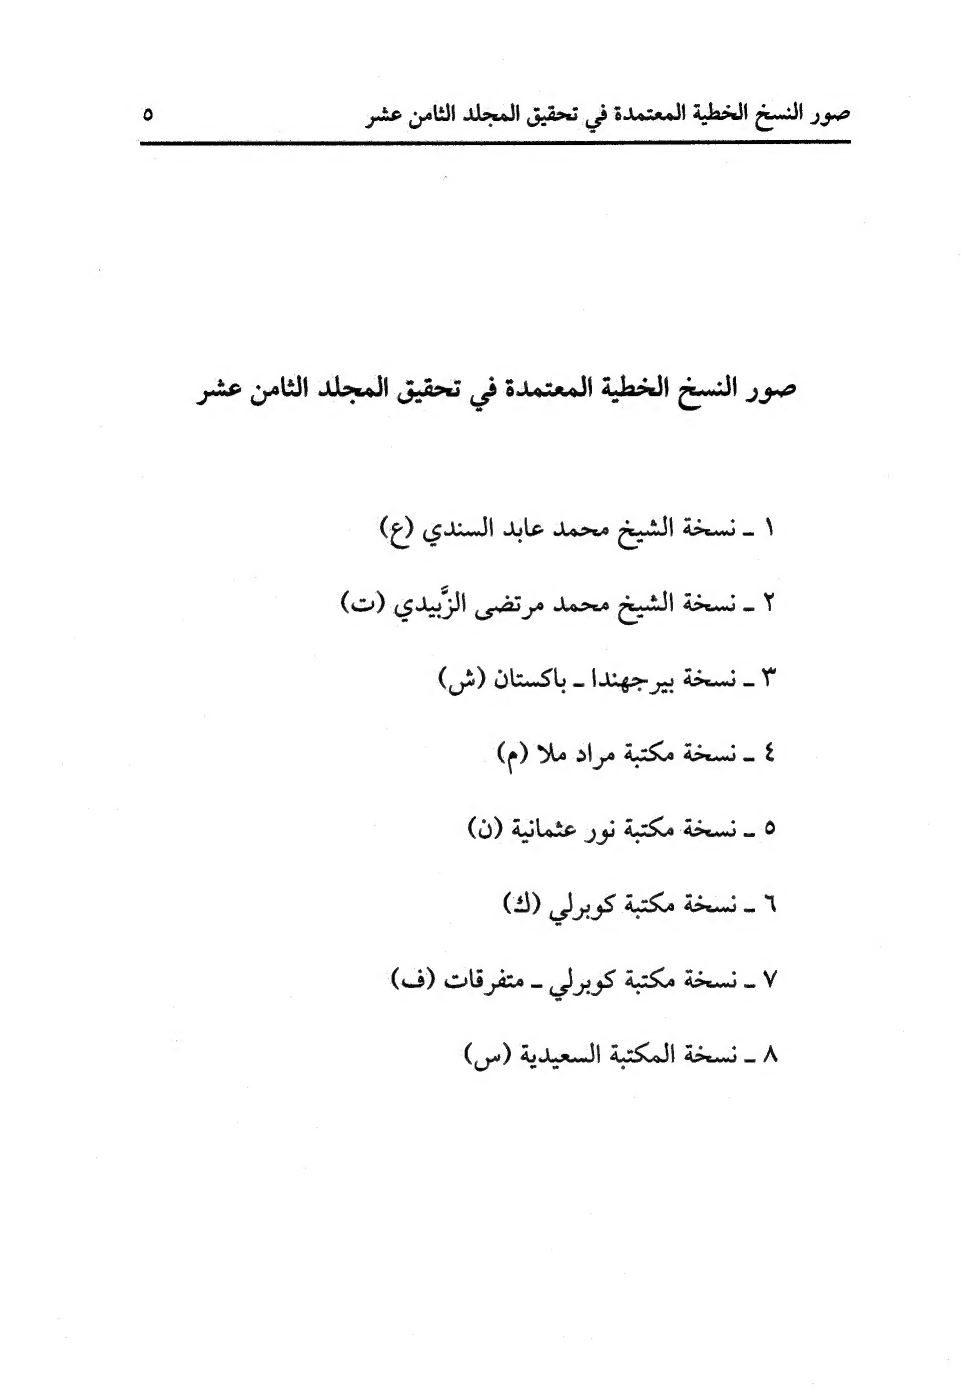 صور النسخ الخطية المعتمدة في تحقيق المجلد الثامن عشر ٥
صور النسخ الخطية المعتمدة في تحقيق المجلد الثامن عشر
١ ـ نسخة الشيخ محمد عابد السندي (ع)
٢ ـ نسخة الشيخ محمد مرتضى الزَّبيدي (ت)
٣ ـ نسخة بيرجهندا ـ باكستان (ش)
٤ ـ نسخة مكتبة مراد ملا (م)
٥ ـ نسخة مكتبة نور عثمانية (ن)
٦ ـ نسخة مكتبة كوبرلي (ك)
٧ ـ نسخة مكتبة كوبرلي ـ متفرقات (ف)
٨ ـ نسخة المكتبة السعيدية (س)